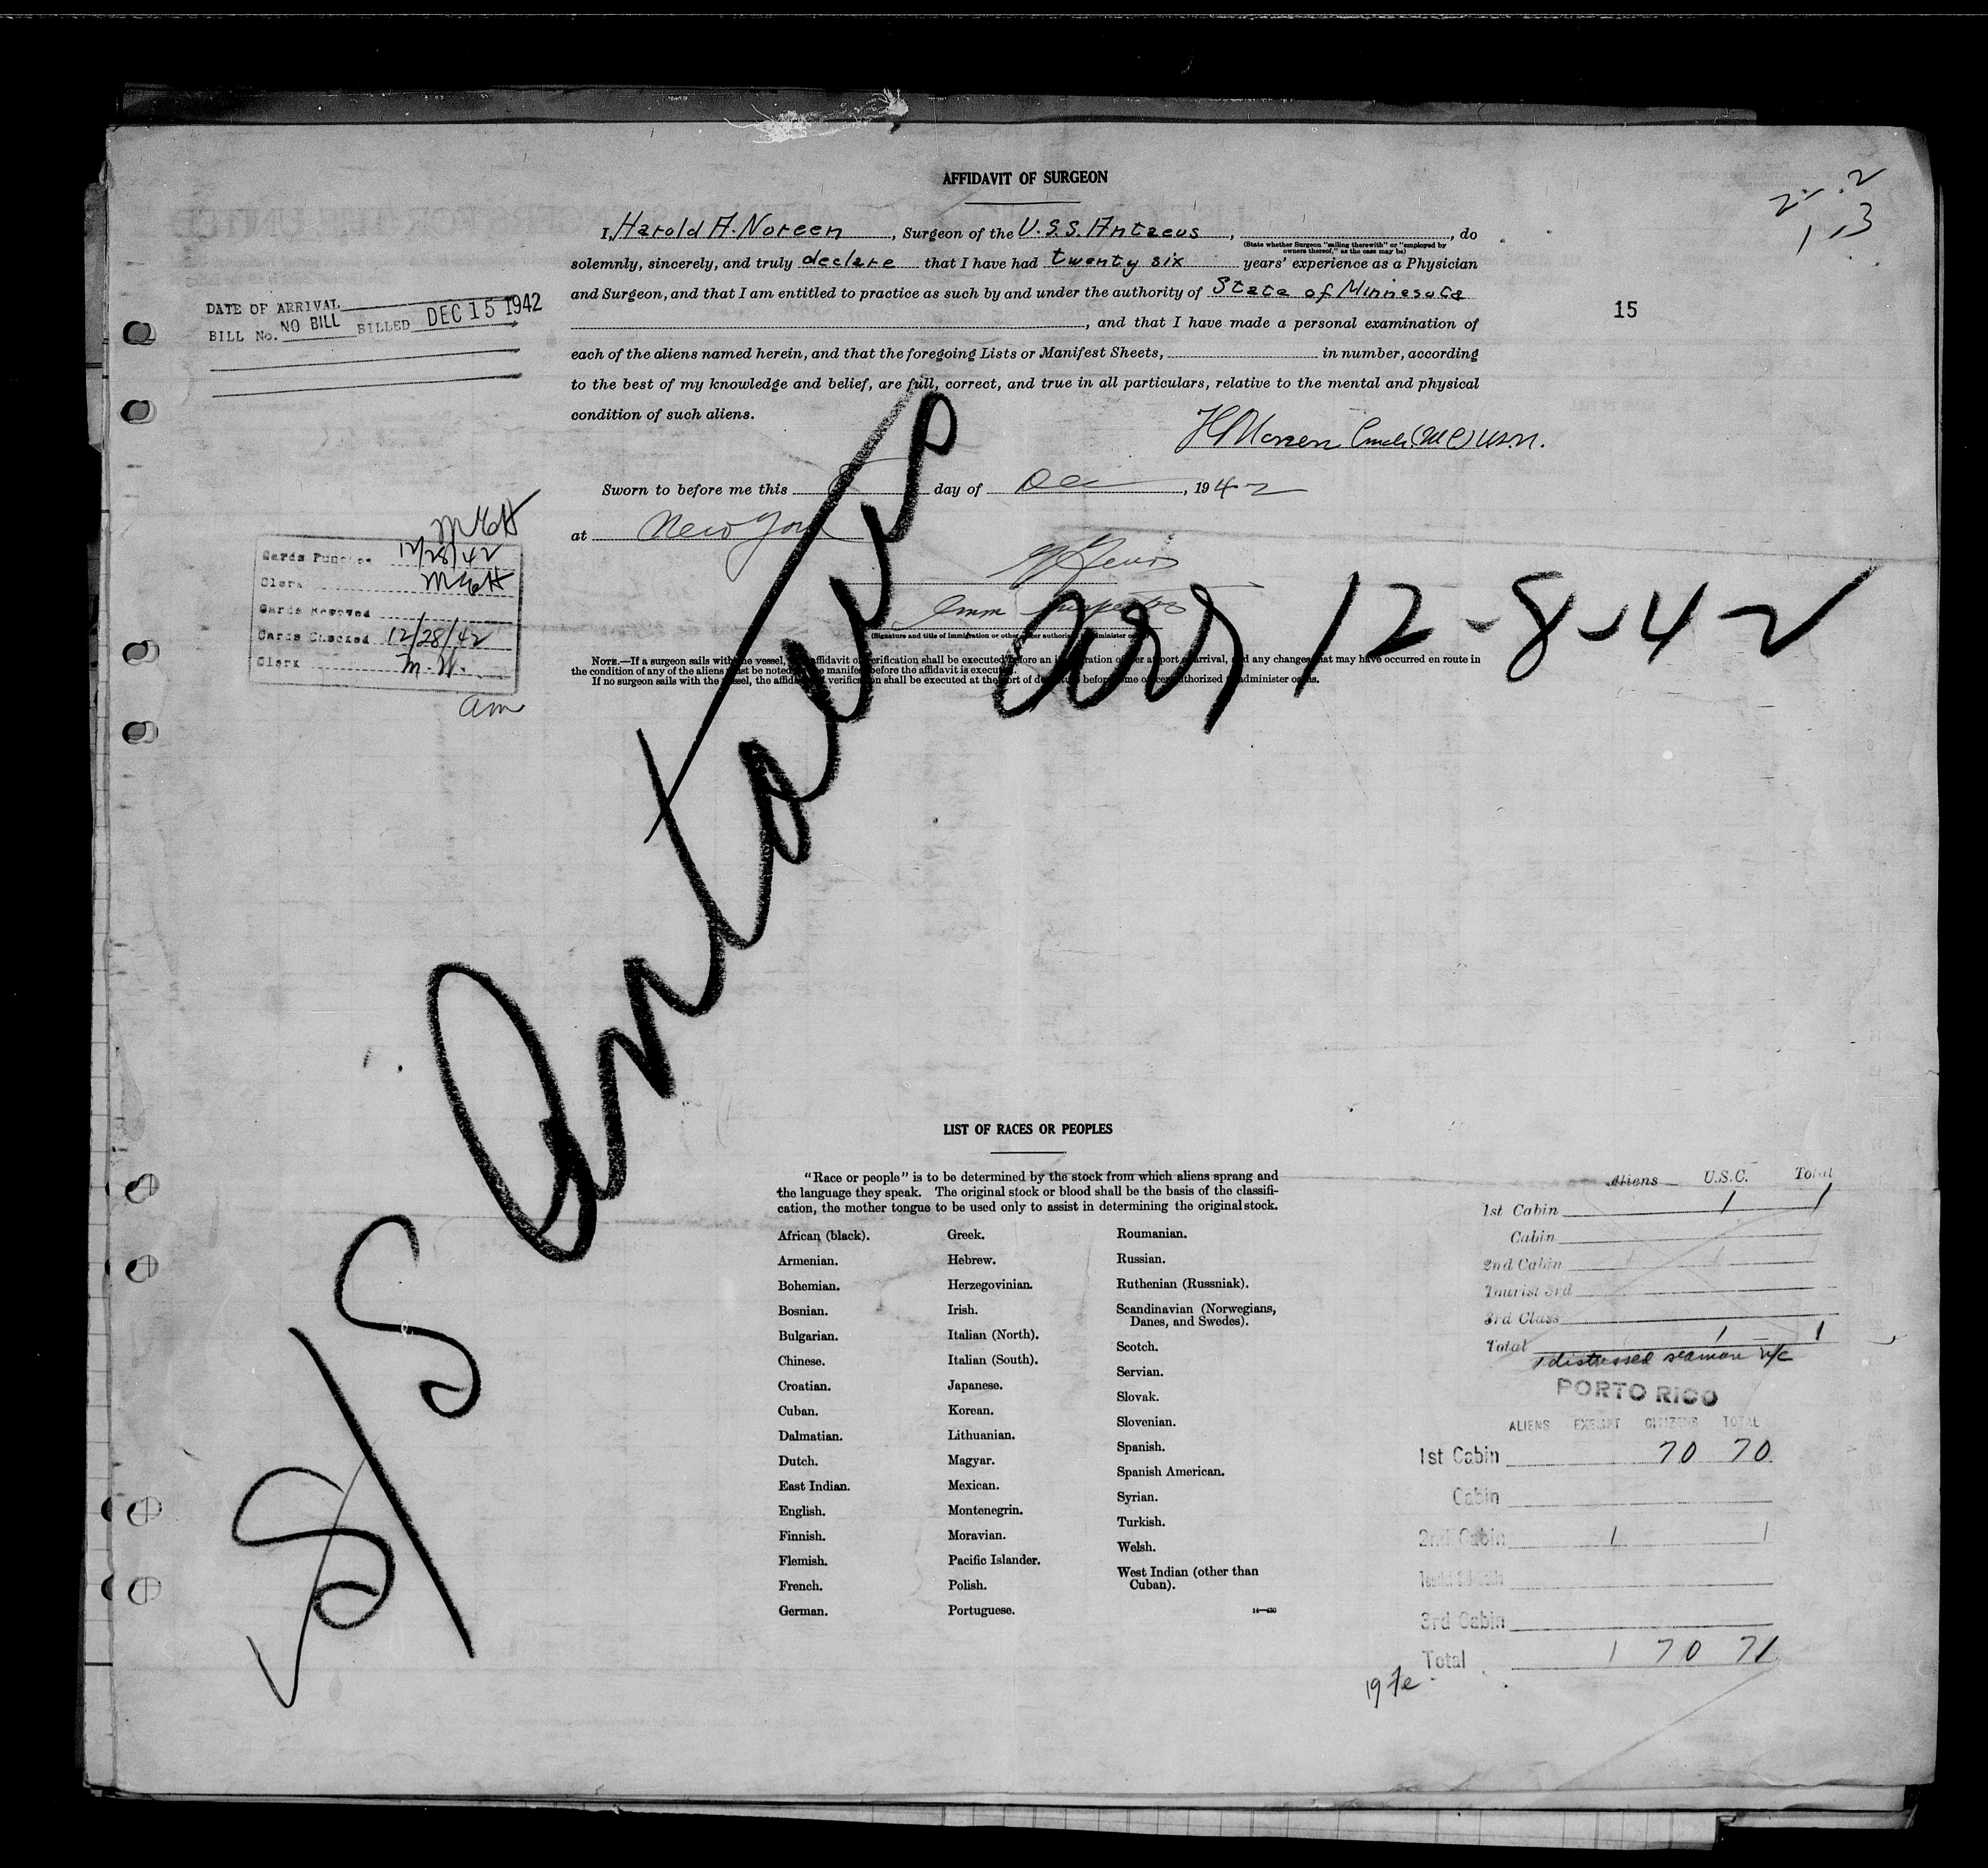 AFFIDAVIT OF SURGEON
I, Harold A. Noreen, Surgeon of the U.S.S. Antaeus, , do
(State whether Surgeon "sailing therewith" or "employed by
owners thereof," as the case may be)
solemnly, sincerely, and truly declare that I have had twenty six years' experience as a Physician
and Surgeon, and that I am entitled to practice as such by and under the authority of State of Minnesota
, and that I have made a personal examination of
each of the aliens named herein, and that the foregoing Lists or Manifest Sheets, in number, according
to the best of my knowledge and belief, are full, correct, and true in all particulars, relative to the mental and physical
condition of such aliens.
15
DATE OF ARRIVAL
BILL No. NO BILL BILLED DEC 15 1942
Sworn to before me this 8 day of Dec, 1942
at New York
Cards Punched 12/28/42
Clerk
Cards Removed
Cards Checked 12/28/42
Clerk M.W.
am
(Signature and title of immigration or other officer authorized to administer oaths)
NOTE.—If a surgeon sails with the vessel, the affidavit of verification shall be executed before an immigration officer at port of arrival, and any changes that may have occurred en route in
the condition of any of the aliens must be noted on the manifest before the affidavit is executed.
If no surgeon sails with the vessel, the affidavit of verification shall be executed at the port of departure before some officer authorized to administer oaths.
S/S Antaeus
arr 12-8-42
LIST OF RACES OR PEOPLES
"Race or people" is to be determined by the stock from which aliens sprang and
the language they speak. The original stock or blood shall be the basis of the classifi-
cation, the mother tongue to be used only to assist in determining the original stock.
African (black).
Armenian.
Bohemian.
Bosnian.
Bulgarian.
Chinese.
Croatian.
Cuban.
Dalmatian.
Dutch.
East Indian.
English.
Finnish.
Flemish.
French.
German.
Greek.
Hebrew.
Herzegovinian.
Irish.
Italian (North).
Italian (South).
Japanese.
Korean.
Lithuanian.
Magyar.
Mexican.
Montenegrin.
Moravian.
Pacific Islander.
Polish.
Portuguese.
Roumanian.
Russian.
Ruthenian (Russniak).
Scandinavian (Norwegians,
Danes, and Swedes).
Scotch.
Servian.
Slovak.
Slovenian.
Spanish.
Spanish American.
Syrian.
Turkish.
Welsh.
West Indian (other than
Cuban).
Aliens U.S.C. Total
1st Cabin 1 1
Cabin
2nd Cabin
Tourist 3rd
3rd Class
Total 1 - 1
1 distressed seaman
PORTO RICO
ALIENS EXEMPT CITIZENS TOTAL
1st Cabin 70 70
Cabin
2nd Cabin 1 1
3rd Cabin
Total 1 70 71